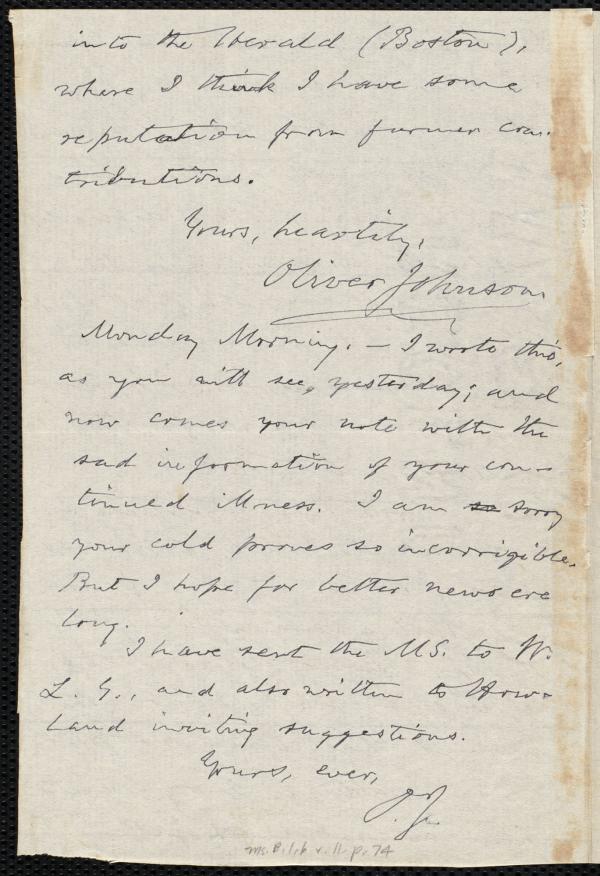 into the Herald (Boston),
where I think I have some
reputation from former con-
tributions.
Yours, heartily,
Oliver Johnson
Monday Morning. – I wrote this,
as you will see, yesterday; and
now comes your note with the
sad information of your con-
tinued illness. I am so sorry
your cold proves so incorrigible.
But I hope for better news ere
long.
I have sent the MS. to W.
L. G., and also written to How-
land inviting suggestions.
Yours, ever,
O. J.
Ms. B.1.6 v. 11 p. 74